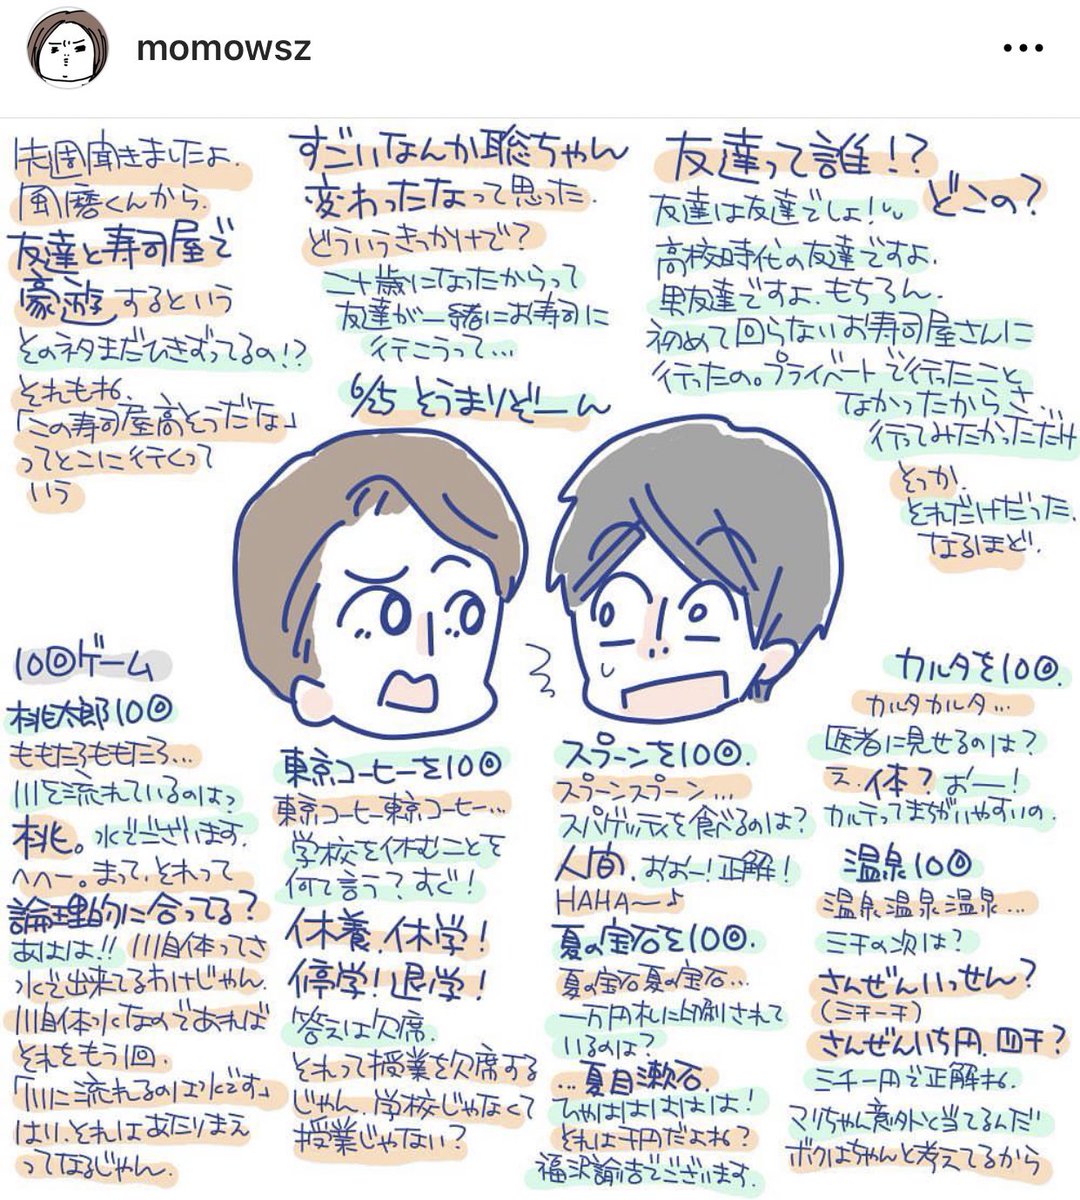 momowsz
先週聞きましたよ.
風磨くんから.
友達と寿司屋で
豪遊するという
そのネタまだひきずってるの!?
それもね.
「この寿司屋高そうだな」
ってとこに行くって
いう
すごいなんか聡ちゃん
変わったなって思った.
どういうきっかけで?
二十歳になったからって
友達が一緒にお寿司に
行こうって…
6/25 そうまりどーん
友達って誰!?
どこの?
友達は友達でしょ!
高校時代の友達ですよ.
男友達ですよ.もちろん.
初めて回らないお寿司屋さんに
行ったの。プライベートで行ったこと
なかったからさ…
行ってみたかっただけ
そっか.
それだけだった.
なるほど.
10回ゲーム
桃太郎10回
ももたろももたろ…
川を流れているのは?
桃。水でございます.
へへー。まって、それって
論理的に合ってる?
あはは!! 川自体ってさ
水で出来てるわけじゃん.
川自体水なのであれば
それをもう1回.
「川に流れるのは水です」
はい.それはあたりまえ
ってなるじゃん.
東京コーヒーを10回
東京コーヒー東京コーヒー…
学校を休むことを
何て言う?すぐ!
休養.休学!
停学!退学!
答えは欠席.
それって授業を欠席する
じゃん.学校じゃなくて
授業じゃない?
スプーンを10回.
スプーンスプーン…
スパゲッティを食べるのは?
人間.おおー!正解!
HAHA〜♪
夏の宝石を10回.
夏の宝石夏の宝石…
一万円札に印刷されて
いるのは?
…夏目漱石.
ひゃはははははは!
それは千円だよね?
福沢諭吉でございます.
カルタを10回.
カルタカルタ…
医者に見せるのは?
え.体?おー!
カルテってまちがいやすいの.
温泉10回
温泉温泉温泉…
三千の次は?
さんぜんいっせん?
(三千一千)
さんぜんいち円.四千?
三千一円で正解ね.
マリちゃん意外と当てるんだ
ボクはちゃんと考えてるから